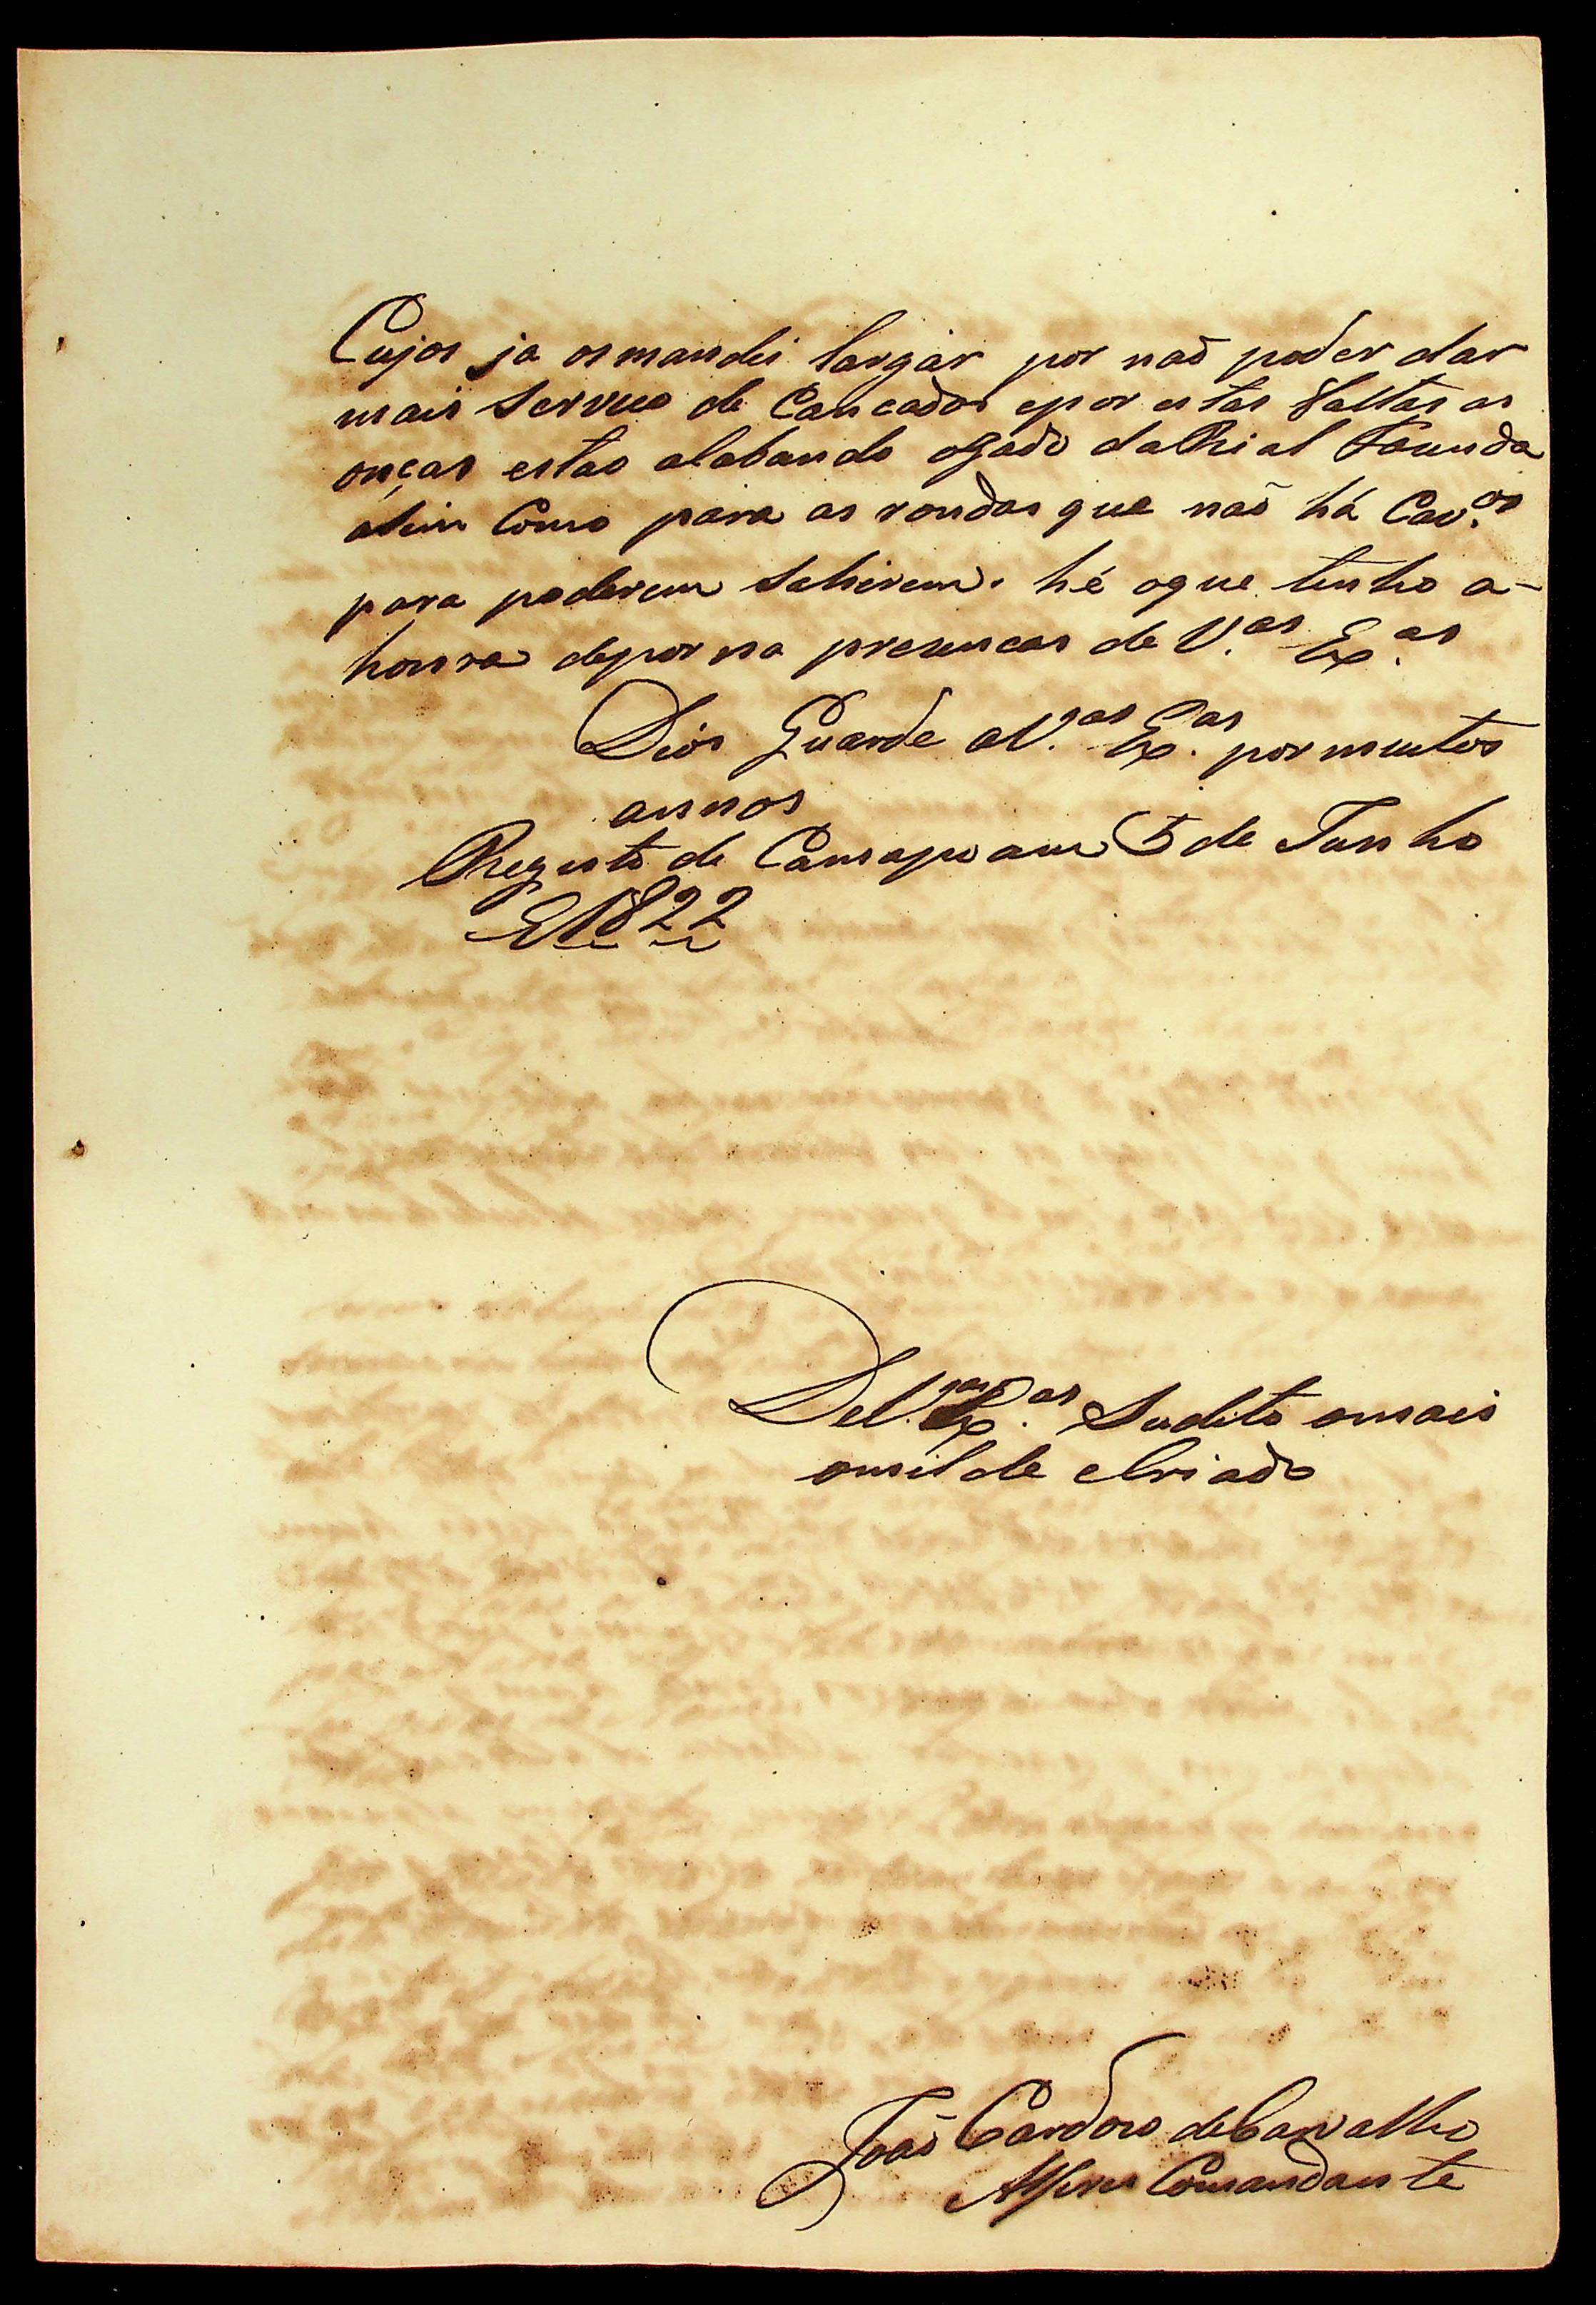 Cujos ja osmandei largar por naõ poder dar
mais servico de Cancados epor estas faltas as
onças estao acabando ogado daRial Fazenda
asim Como para as rondas que naõ há Cav.os
para poderem Sahirem. hé oque tenho a-
honra depor na presencas de V.as Ex.as
Dios Guarde aV.as Ex.as por muitos
annos
Registo de Camapoam 5 de Junho
E1822
DeV.as Ex.as Sudito omais
omilde Criado
Joaõ Cardozo deCarvalho
Alferes Comandante